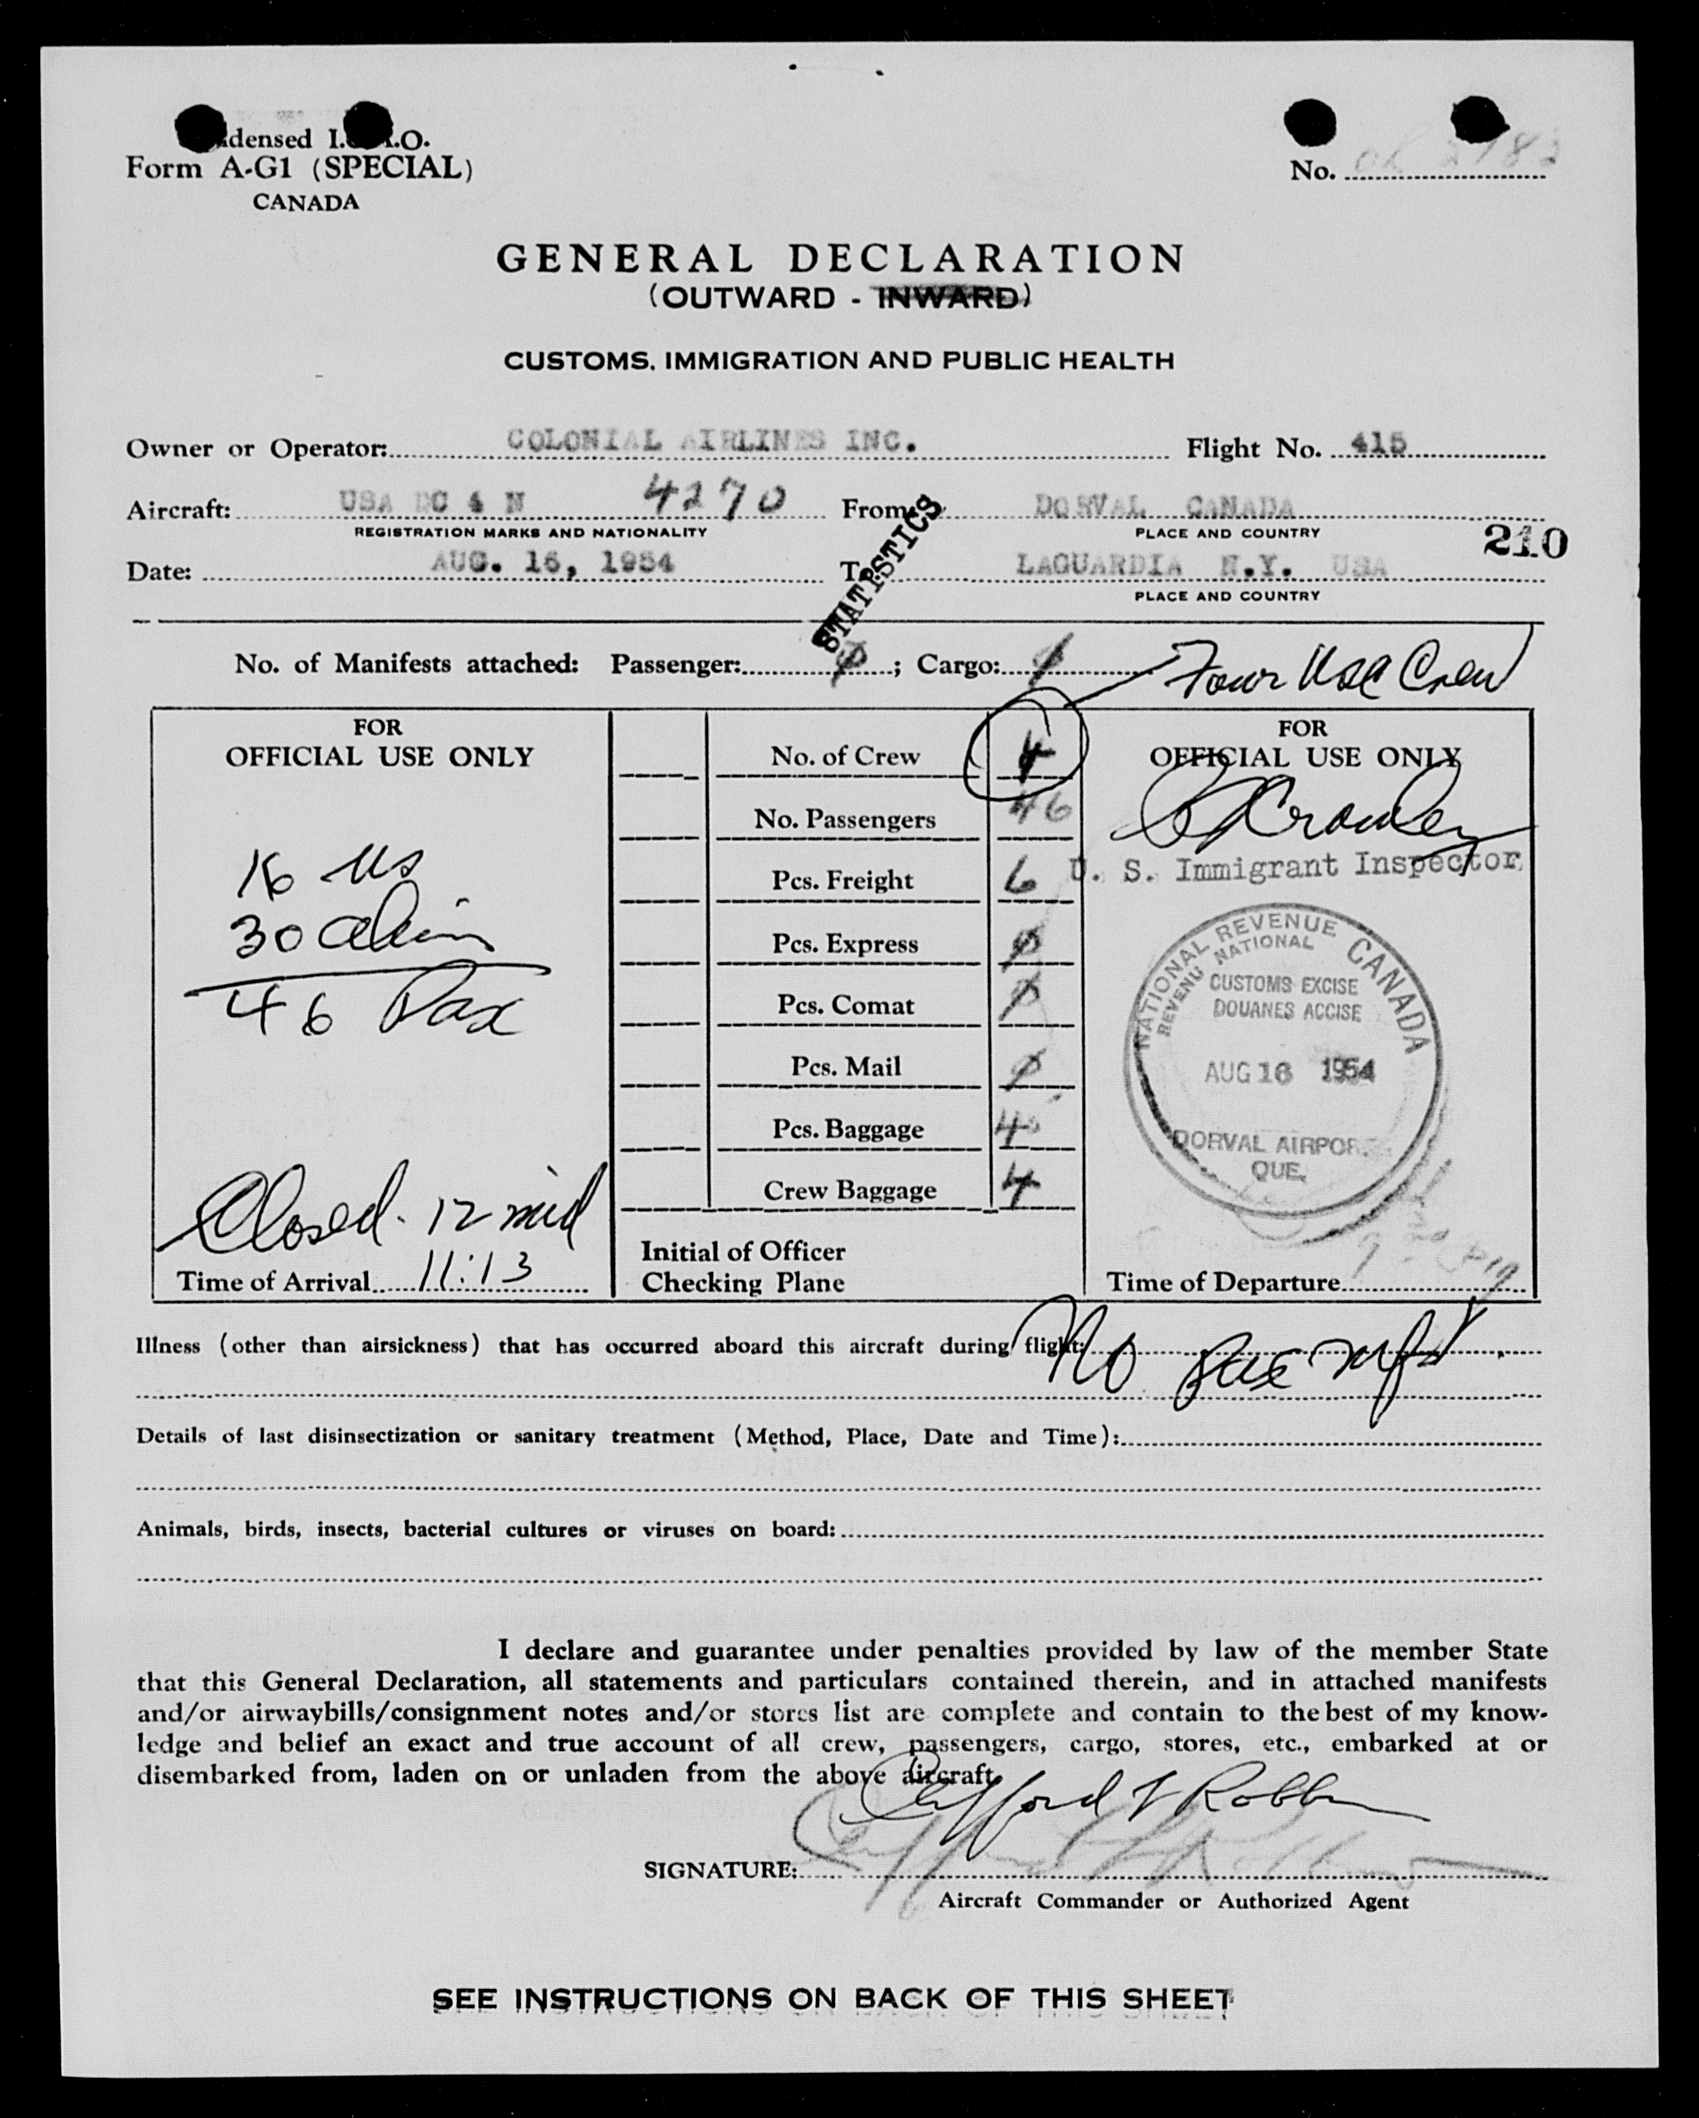 densed I. .O.
Form A-G1 (SPECIAL)
CANADA
No.
GENERAL DECLARATION
(OUTWARD - INWARD)
CUSTOMS, IMMIGRATION AND PUBLIC HEALTH
Owner or Operator: COLONIAL AIRLINES INC. Flight No. 415
Aircraft: USA DC 4 N 4270 From DORVAL CANADA
REGISTRATION MARKS AND NATIONALITY PLACE AND COUNTRY
210
Date: AUG. 16, 1954 To LAGUARDIA N.Y. USA
PLACE AND COUNTRY
STATISTICS
No. of Manifests attached: Passenger: ; Cargo: Four USA Crew
FOR
OFFICIAL USE ONLY
16 US
30 alien
46 Pax
Closed. 12 mid
Time of Arrival 11:13
No. of Crew 4
No. Passengers 46
Pcs. Freight 6
Pcs. Express 0
Pcs. Comat 0
Pcs. Mail 0
Pcs. Baggage
Crew Baggage 4
Initial of Officer
Checking Plane
FOR
OFFICIAL USE ONLY
Crowley
U. S. Immigrant Inspector
NATIONAL REVENUE CANADA
REVENU NATIONAL
CUSTOMS EXCISE
DOUANES ACCISE
AUG 16 1954
DORVAL AIRPOR
QUE.
Time of Departure
Illness (other than airsickness) that has occurred aboard this aircraft during flight: No pax mfst
Details of last disinsectization or sanitary treatment (Method, Place, Date and Time):
Animals, birds, insects, bacterial cultures or viruses on board:
I declare and guarantee under penalties provided by law of the member State
that this General Declaration, all statements and particulars contained therein, and in attached manifests
and/or airwaybills/consignment notes and/or stores list are complete and contain to the best of my know-
ledge and belief an exact and true account of all crew, passengers, cargo, stores, etc., embarked at or
disembarked from, laden on or unladen from the above aircraft.
Clifford L Robb
SIGNATURE:
Aircraft Commander or Authorized Agent
SEE INSTRUCTIONS ON BACK OF THIS SHEET